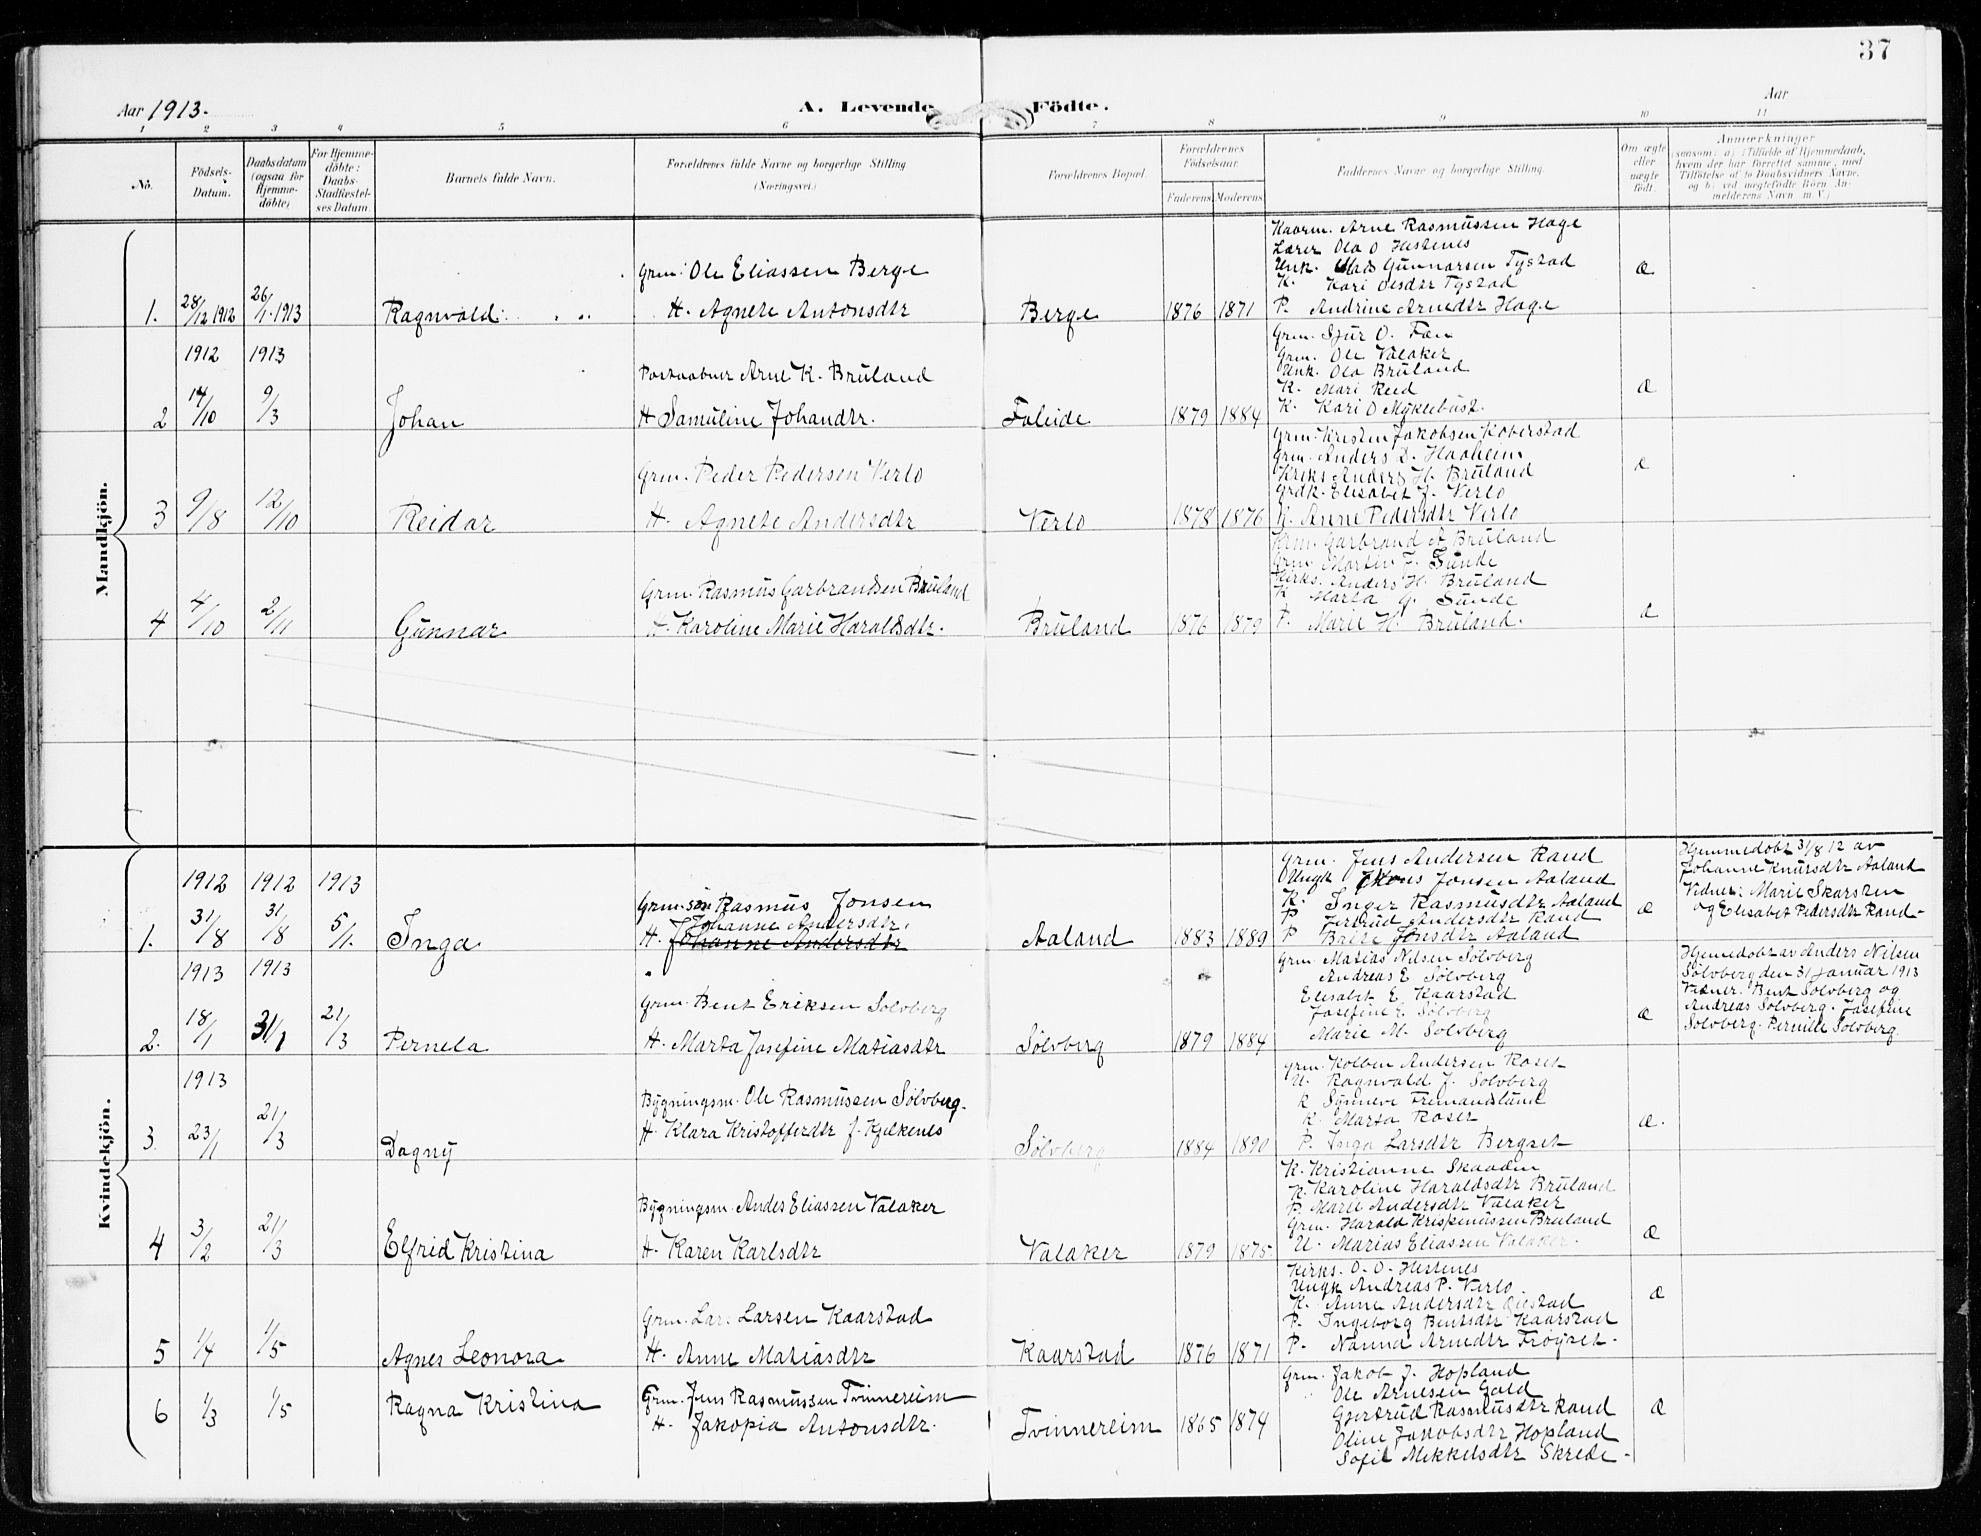 37
Aar 1913.
A. Levende Födte.
Aar
1 2 3 4 5 6 7 8 9 10 11
No.
Födsels-Datum.
Daabsdatum (ogsaa for Hjemme-döbte)
For Hjemme-döbte: Daabs-Stadfæstel-ses Datum.
Barnets fulde Navn.
Forældrenes fulde Navne og borgerlige Stilling (Næringsvei.)
Forældrenes Bopæl.
Forældrenes Födselsaar.
Faderens Moderens
Faddernes Navne og borgerlige Stilling.
Om ægte eller uægte födt.
Anmærkninger
(saasom: a) i Tilfælde af Hjemmedaab, hvem der har forrettet samme, med Tilföielse af to Daabsvidners Navne, og b) ved uægtefödte Börn An-melderens Navn m. V.)
Mandkjön.
1. 28/12 1912 26/1 1913 Ragnvald
Grm. Ole Eliassen Berge
H. Agnete Antonsdtr
Berge 1876 1871
Kaarm. Arne Rasmussen Hage
Lærer Ola O Hestenes
Unk. Mads Gunnarsen Tystad
K. Kari Olsdtr Tystad
P. Andrine Arnedtr Hage
Æ
2 1912 14/10 1913 9/3 Johan
Postaabner Arne K. Bruland
H Samuline Johandtr.
Faleide 1879 1884
Grm. Sjur O. Fæn
Grm. Ole Valaker
Unk. Ola Bruland
K. Mari Reed
K. Kari O Myklebust.
Æ
3 9/8 12/10 Reidar
Grm. Peder Pedersen Verlo
H. Agnete Andersdtr
Verlo 1878 1876
Grm. Kristen Jakobsen Koberstad
Grm. Anders D. Haaheim
Kirks Anders H. Bruland
Grdk. Elisabet J. Verlo
K. Anne Pedersdtr Verlo
Æ
4 4/10 2/11 Gunnar
Grm. Rasmus Garbrandsen Bruland
H. Karoline Marie Haraldsdtr.
Bruland 1876 1879
Krm. Garbrand A Bruland
Grm. Martin J. Sunde
Kirks. Anders H. Bruland
K Marta G. Sunde
P. Marie H. Bruland.
Æ
Kvindekjön.
1. 1912 31/8 1912 31/8 1913 5/1 Inga
Grm.søn Rasmus Jonsen
Johanne Andersdtr.
H. Johanne Andersdtr
Aaland 1883 1889
Grm. Jens Andersen Rand
Ungk Mons Jonsen Aaland
K. Inger Rasmusdtr Aaland
P Jertrud Andersdtr Rand
P Brite Jonsdtr Aaland
Æ
Hjemmedøbt 31/8 12 av
Johanne Knutsdtr Aaland
Vidner: Marie Skarsten
og Elisabet Pedersdtr Rand-
2. 1913 18/1 1913 31/1 21/3 Pernela
Grm. Bent Eriksen Solvberg
H. Marta Josefine Matiasdtr
Sølvberg 1879 1884
Grm. Matias Nilsen Sølvberg
Andreas E Sølvberg
Elisabet E Kaarstad
Josefine E Sølvberg
Marie M. Sølvberg
Æ
Hjemedøbt av Anders Nilsen
Sølvberg den 31 januar 1913
Vidner: Bent Sølvberg og
Andreas Sølvberg. Josefine
Sølvberg. Pernille Sølvberg.
3. 1913 23/1 21/3 Dagny
Bygningsm. Ole Rasmussen Sølvberg.
H. Klara Kristofferdtr f. Kjelkenes
Sølvberg 1884 1890
Grm. Kolben Andersen Roset
U. Ragnvald J. Solvberg
K Synneve Fremandslund
K. Marta Roset
P. Inga Larsdtr Bergset
Æ.
4 3/2 21/3 Elfrid Kristina
Bygningsm. Andes Eliassen Valaker
H. Karen Karlsdtr
Valaker 1879 1875.
K. Kristianne Skaaden
K. Karoline Haraldsdtr Bruland
P. Marie Andersdtr Valaker
Grm. Harald Krispinussen Bruland
U. Marius Eliassen Valaker.
Æ
5 1/4 1/5 Agnes Leonora
Grm. Lars Larsen Kaarstad
H. Anne Matiasdtr
Kaarstad 1876 1871
Kirks. O. O. Hestenes
Ungk Andreas P. Verlo
K. Anne Andersdtr Gjestad
P. Ingeborg Bentsdtr Kaarstad
P. Nanna Arnedtr Frøyset.
Æ
6 1/3 1/5 Ragna Kristina
Grm. Jens Rasmussen Tvinnereim
H. Jakopia Antonsdtr.
Tvinnereim 1865 1874
Grm. Jakob J. Hopland
Ole Arnesen Gald
Gjertrud Rasmusdtr Rand
Oline Jakobsdtr Hopland
Sofie Mekkelsdtr Skrede-
Æ